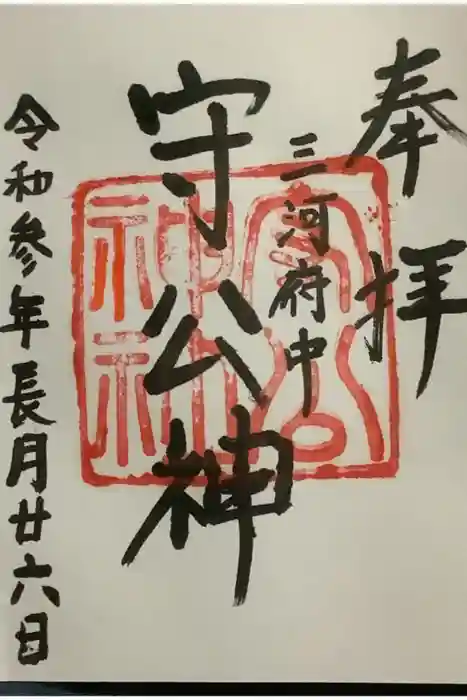 奉拝
三河府中
守公神
守公
神社
令和参年長月廿六日